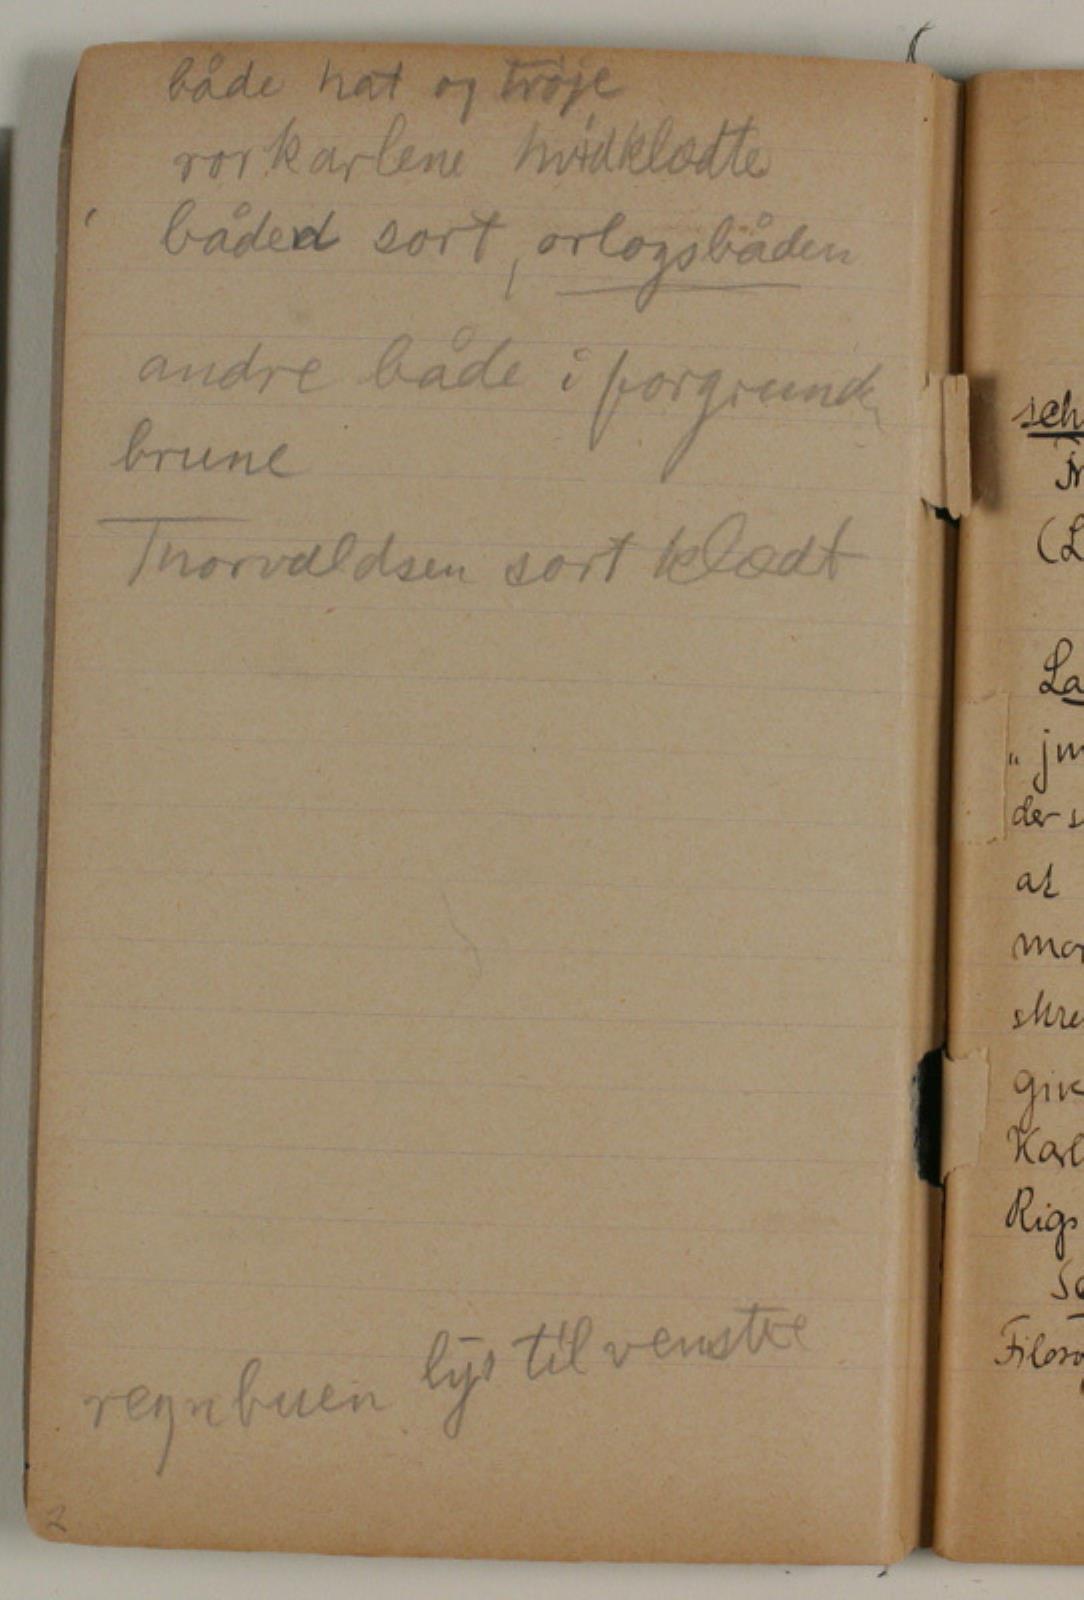 både hat og trøje
rorkarlene hvidklædte
båden sort, orlogsbåden
andre både i forgrund
brune
Thorvaldsen sort klædt
regnbuen lys til venstre
2
sch
(L
La
„ jm
der s
at
mor
skre
give
Karl
Rigs
Filoso